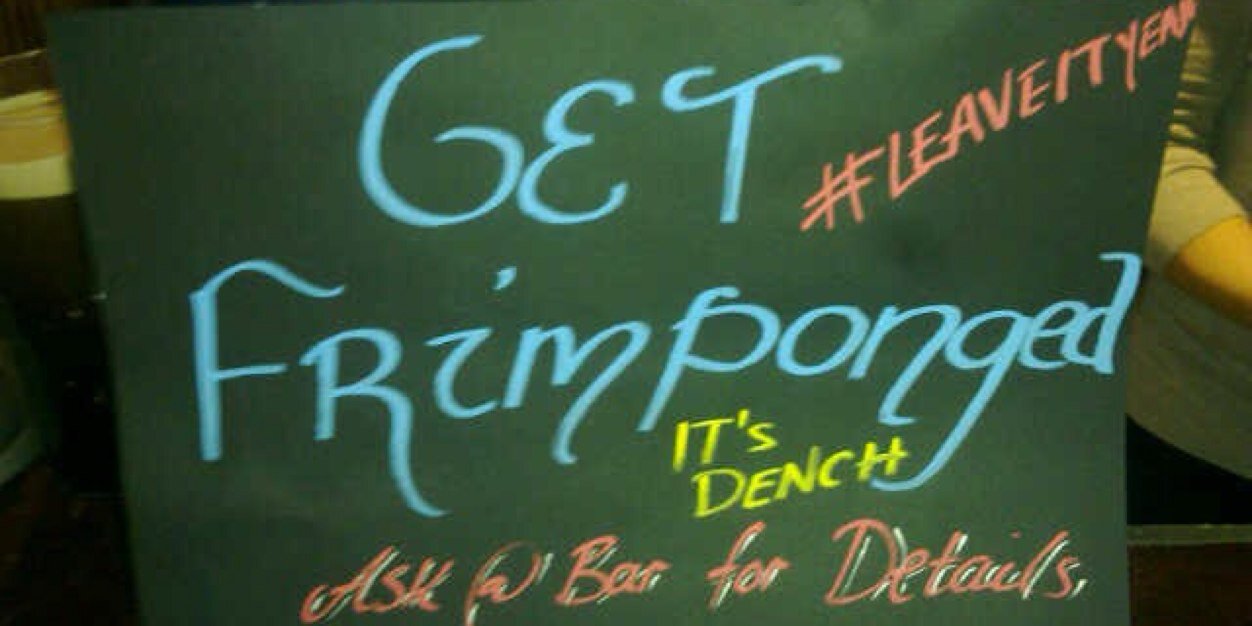 GET
#LEAVEITYEAH
FRimponged
IT'S
DENCH
Ask @ Bar for Details,